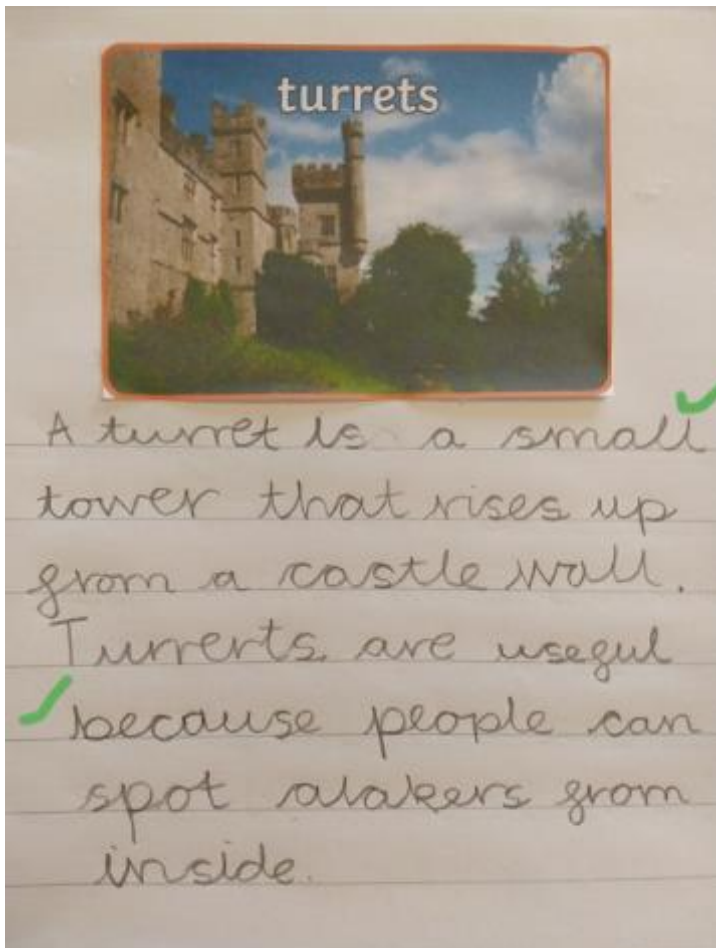 turrets
A turret is a small
tower that rises up
from a castle wall.
Turrerts are useful
because people can
spot atakers from
inside.